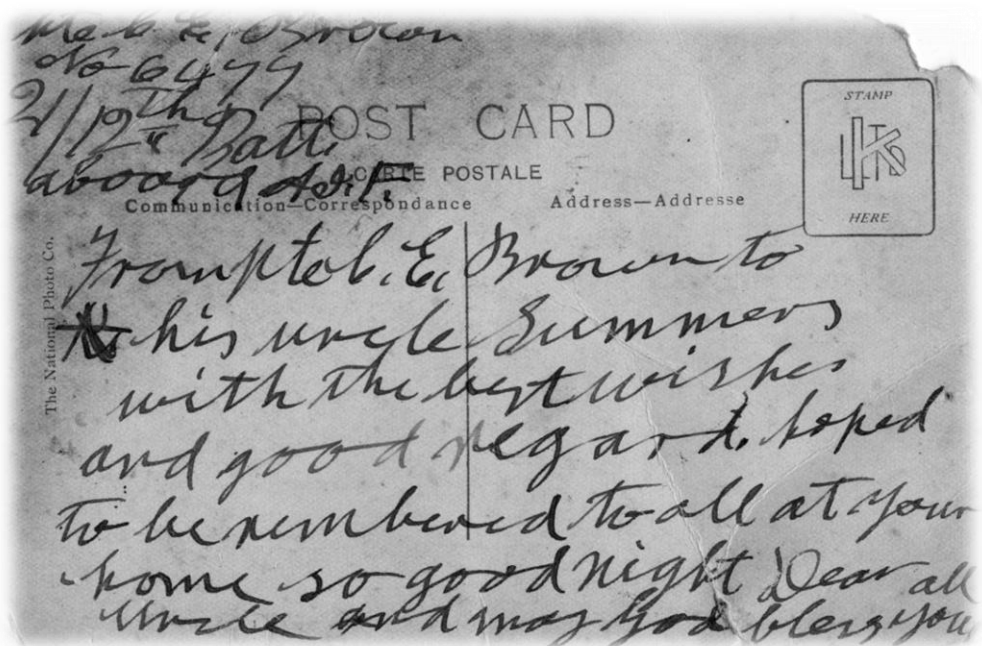 Pte C. E. Brown
No 6477
21/12th Batt.
aboard A.I.F.
POST CARD
CARTE POSTALE
Communication—Correspondance
Address—Addresse
STAMP
HERE
The National Photo Co.
From pte C. E. Brown to
his uncle Summers
with the best wishes
and good regard. hoped
to be rembered to all at your
home so good night Dear all
uncle and may God bless you